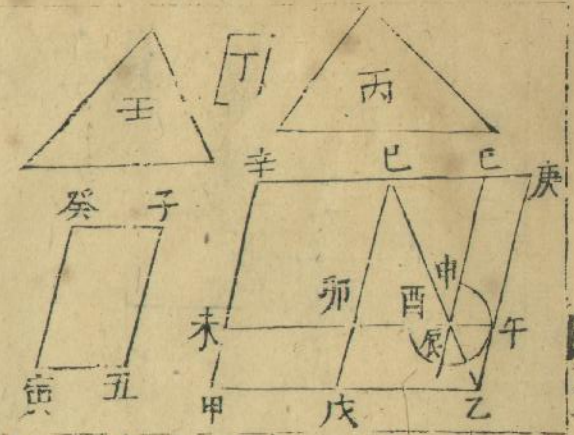 壬 丁 丙
辛 巳 己 庚
癸 子
申
卯 酉
未 辰 午
寅 丑
甲 戊 乙